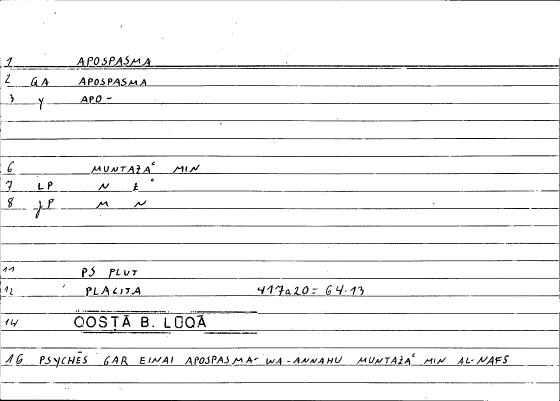 1 APOSPASMA
2 GA APOSPASMA
3 y APO-
6 MUNTAZAᶜ MIN
7 LP N Z ᶜ
8 JP M N
11 PS PLUT
12 PLACITA 417a20 = 64.13
14 QOSṬĀ B. LŪQĀ
16 PSYCHĒS GAR EINAI APOSPASMA - WA-ANNAHU MUNTAZAᶜ MIN AL-NAFS